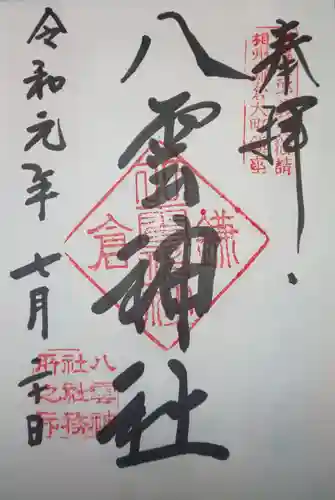 奉拝
八雲神社
令和元年
七月二十日
鎌
倉
八雲神
社社務
所之印